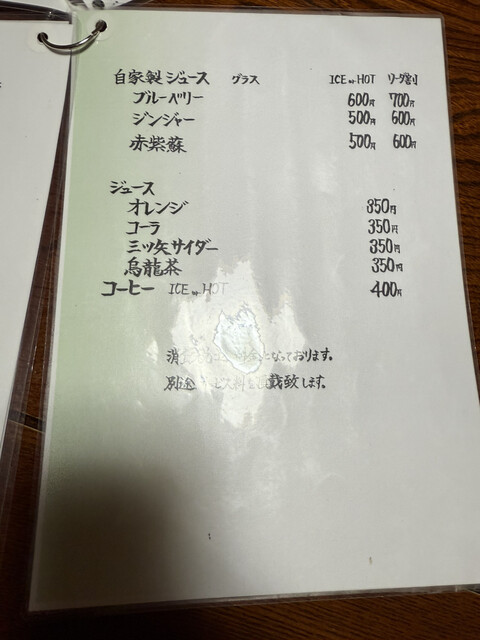 自家製ジュース グラス ICE or HOT ソーダ割り
ブルーベリー 600円 700円
ジンジャー 500円 600円
赤紫蘇 500円 600円
ジュース
オレンジ 350円
コーラ 350円
三ツ矢サイダー 350円
烏龍茶 350円
コーヒー ICE or HOT 400円
消 となっております。
別途 頂戴致します。